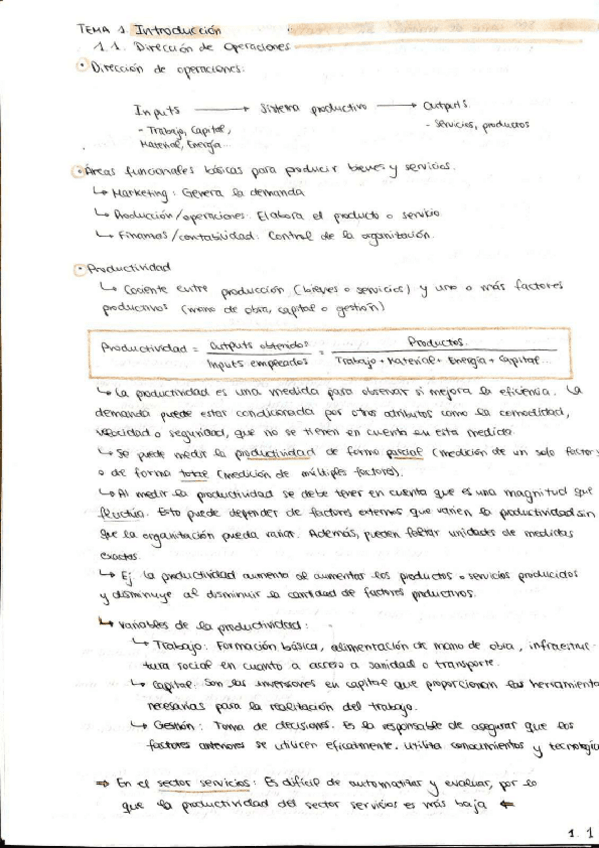 TEMA 1. Introducción
1.1. Dirección de operaciones
• Dirección de operaciones:
Inputs → Sistema productivo → Outputs
- Trabajo, Capital, - Servicios, productos
Material, Energía...
• Áreas funcionales básicas para producir bienes y servicios.
↳ Marketing: Genera la demanda
↳ Producción/operaciones: Elabora el producto o servicio
↳ Finanzas/contabilidad: Control de la organización.
• Productividad
↳ Cociente entre producción (bienes o servicios) y uno o más factores
productivos (mano de obra, capital o gestión)
Productividad = Outputs obtenidos / Inputs empleados = Productos / Trabajo + Material + Energía + Capital...
↳ La productividad es una medida para observar si mejora la eficiencia. La
demanda puede estar condicionada por otros atributos como la comodidad,
velocidad o seguridad, que no se tienen en cuenta en esta medida.
↳ Se puede medir la productividad de forma parcial (medición de un solo factor)
o de forma total (medición de múltiples factores).
↳ Al medir la productividad se debe tener en cuenta que es una magnitud que
fluctúa. Esto puede depender de factores externos que varíen la productividad sin
que la organización pueda variar. Además, pueden faltar unidades de medidas
exactas.
↳ Ej: la productividad aumenta al aumentar los productos o servicios producidos
y disminuye al disminuir la cantidad de factores productivos.
↳ Variables de la productividad:
↳ Trabajo: Formación básica, alimentación de mano de obra, infraestruc-
tura social en cuanto a acceso a sanidad o transporte.
↳ Capital: Son las inversiones en capital que proporcionan las herramienta
necesarias para la realización del trabajo.
↳ Gestión: Toma de decisiones. Es la responsable de asegurar que los
factores anteriores se utilicen eficazmente. Utiliza conocimientos y tecnología
⇒ En el sector servicios: Es difícil de automatizar y evaluar, por lo
que la productividad del sector servicios es más baja ⇐
1. 1